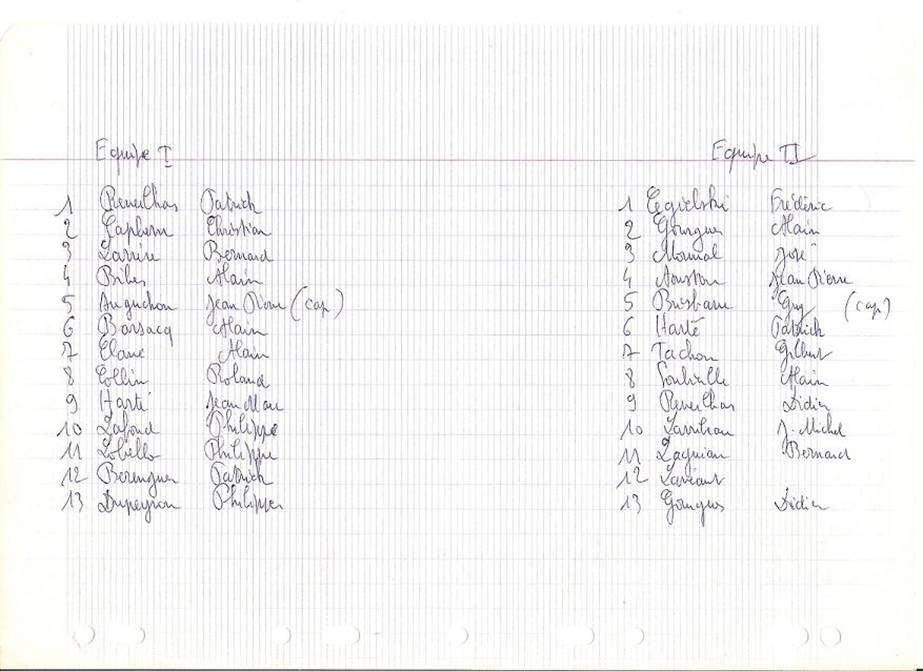 Equipe I
1 Reneilhas Patrick
2 Laplum Christian
3 Larrère Bernard
4 Bibes Alain
5 Auguchon Jean Pierre (cap)
6 Barsacq Alain
7 Clavé Alain
8 Collin Roland
9 Harté Jean Marc
10 Lafond Philippe
11 Lobello Philippe
12 Berenguer Patrick
13 Dupeyron Philippe
Equipe II
1 Cegielski Frédéric
2 Gourgues Alain
3 José
4 Jean Pierre
5 Brisbarre Guy (cap)
6 Harté Patrick
7 Tachon Gilbert
8 Alain
9 Reneilhas Didier
10 J. Michel
11 Laguian Bernard
12
13 Gourgues Didier